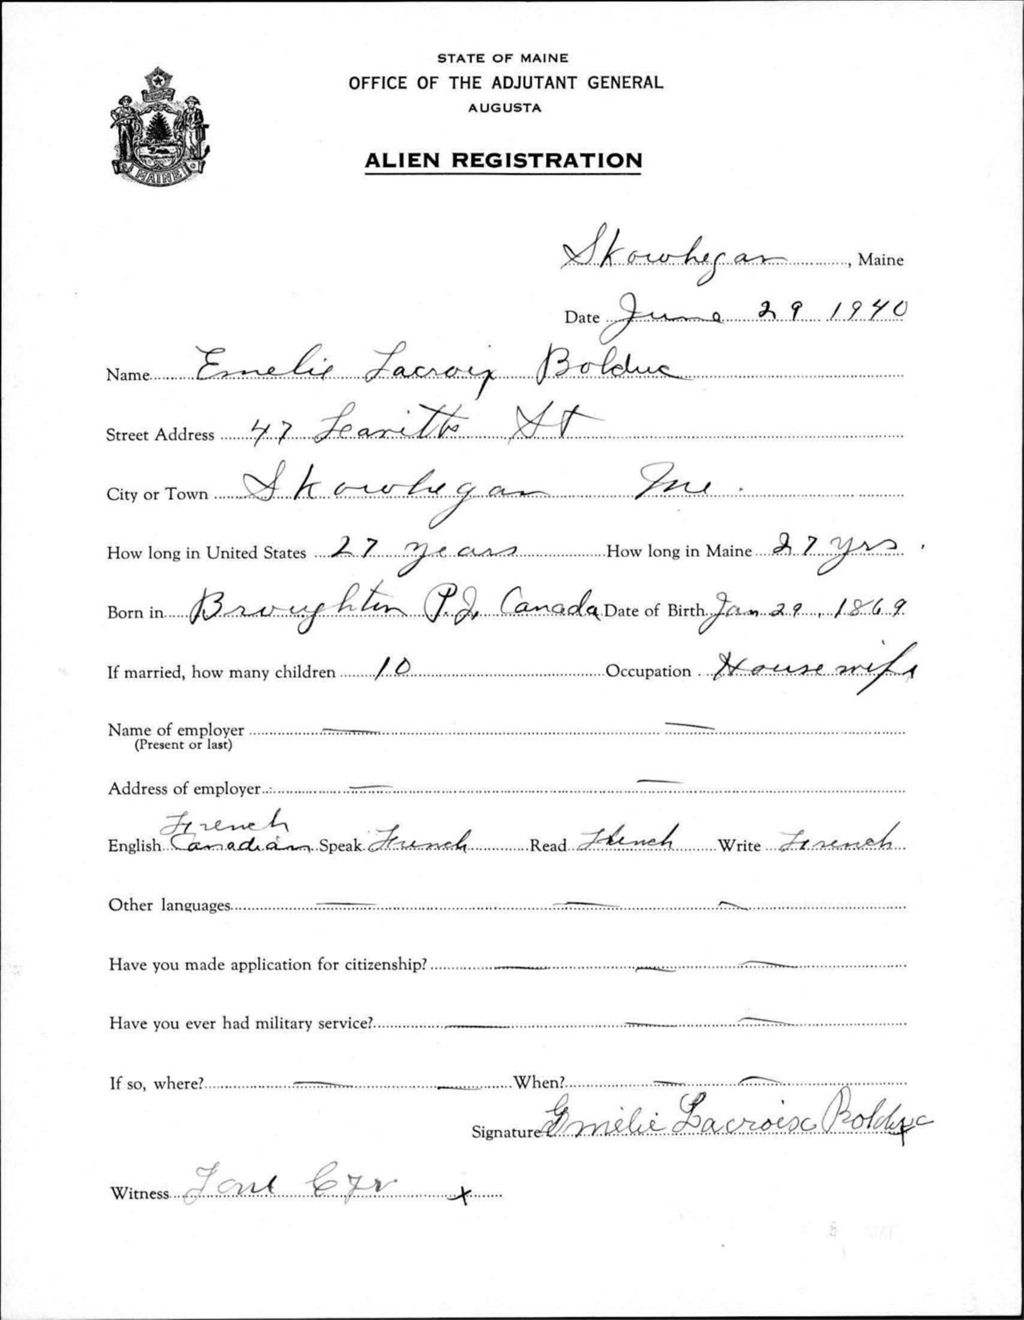 STATE OF MAINE
OFFICE OF THE ADJUTANT GENERAL
AUGUSTA
ALIEN REGISTRATION
MAINE
Skowhegan, Maine
Date June 29 1940
Name Emelie Lacroix Bolduc
Street Address 47 St
City or Town Skowhegan Me.
How long in United States 27 years How long in Maine 27 yrs.
Born in Broughton P.Q. Canada Date of Birth Jan 29, 1869
If married, how many children 10 Occupation Housewife
Name of employer
(Present or last)
Address of employer
French
English Canadian Speak French Read French Write French
Other languages
Have you made application for citizenship?
Have you ever had military service?
If so, where? When?
Signature Emélie Lacroix Bolduc
x
Witness Cyr x